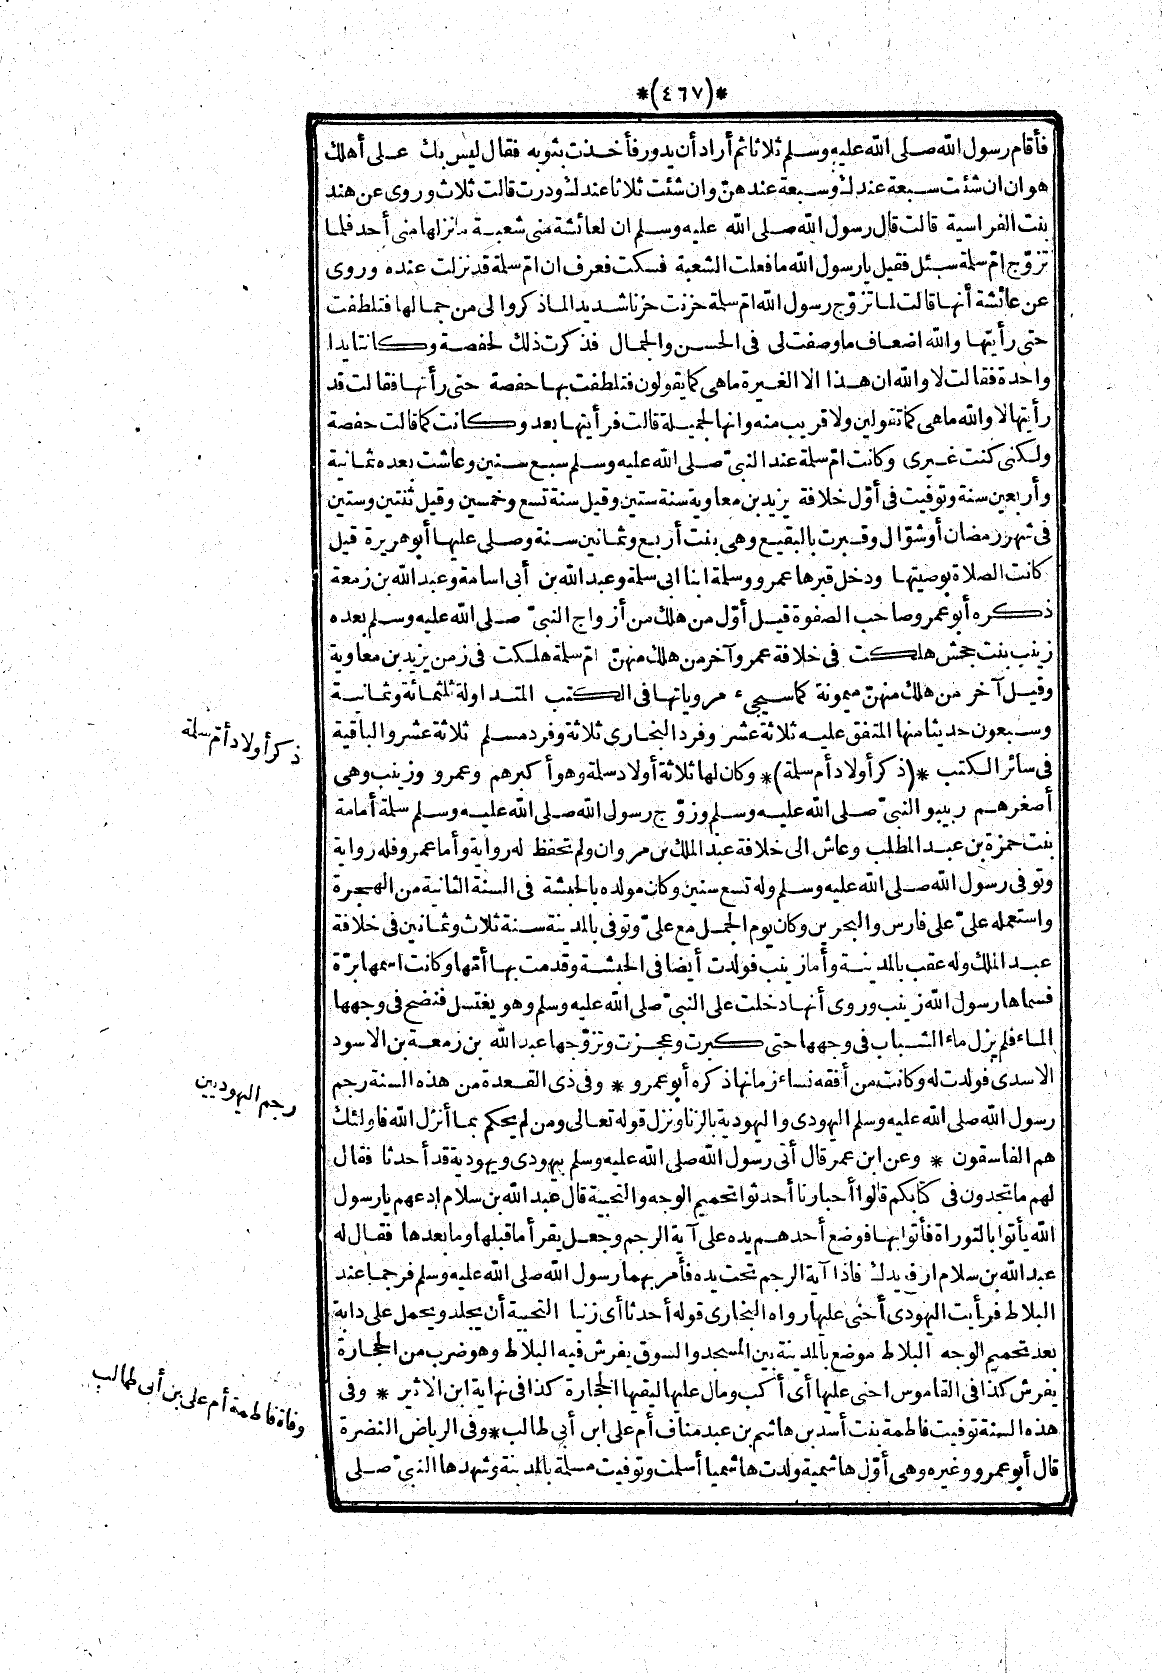 *(٤٦٧)*
فأقام رسول الله صلى الله عليه وسلم ثلاثا ثم أراد أن يدور فأخذت بثوبه فقال ليس بك على أهلك
هوان ان شئت سبعة عندك وسبعة عندهنّ وان شئت ثلاثا عندك ودرت قالت ثلاث وروى عن هند
بنت الفراسية قالت قال رسول الله صلى الله عليه وسلم ان لعائشة منى شعبة ما نزلها منى أحد فلما
تزوّج امّ سلمة سئل فقيل يا رسول الله ما فعلت الشعبة فسكت فعرف ان امّ سلمة قد نزلت عنده وروى
عن عائشة أنها قالت لما تزوّج رسول الله امّ سلمة حزنت حزنا شديدا لما ذكروا لى من جمالها فتلطفت
حتى رأيتها والله اضعاف ما وصفت لى فى الحسن والجمال فذكرت ذلك لحفصة وكانتا يدا
واحدة فقالت لا والله ان هذا الا الغيرة ما هى كما يقولون فتلطفت بها حفصة حتى رأتها فقالت قد
رأيتها لا والله ما هى كما تقولين ولا قريب منه وانها لجميلة قالت فرأيتها بعد وكانت كما قالت حفصة
ولكنى كنت غيرى وكانت امّ سلمة عند النبىّ صلى الله عليه وسلم سبع سنين وعاشت بعده ثمانية
وأربعين سنة وتوفيت فى أوّل خلافة يزيد بن معاوية سنة ستين وقيل سنة تسع وخمسين وقيل ثنتين وستين
فى شهر رمضان أو شوّال وقبرت بالبقيع وهى بنت أربع وثمانين سنة وصلى عليها أبو هريرة قيل
كانت الصلاة بوصيتها ودخل قبرها عمرو وسلمة ابنا ابى سلمة وعبد الله بن أبى اسامة وعبد الله بن زمعة
ذكره أبو عمرو صاحب الصفوة قيل أوّل من هلك من أزواج النبىّ صلى الله عليه وسلم بعده
زينب بنت جحش هلكت فى خلافة عمر وآخر من هلك منهنّ امّ سلمة هلكت فى زمن يزيد بن معاوية
وقيل آخر من هلك منهنّ ميمونة كما سيجىء مروياتها فى الكتب المتداولة ثلثمائة وثمانية
وسبعون حديثا منها المتفق عليه ثلاثة عشر وفرد البخارى ثلاثة وفرد مسلم ثلاثة عشر والباقية
فى سائر الكتب *(ذكر أولاد أم سلمة)* وكان لها ثلاثة أولاد سلمة وهو أكبرهم وعمرو وزينب وهى
أصغرهم ربيبو النبىّ صلى الله عليه وسلم وزوّج رسول الله صلى الله عليه وسلم سلمة أمامة
بنت حمزة بن عبد المطلب وعاش الى خلافة عبد الملك بن مروان ولم تحفظ له رواية وأما عمرو فله رواية
وتوفى رسول الله صلى الله عليه وسلم وله تسع سنين وكان مولده بالحبشة فى السنة الثانية من الهجرة
واستعمله علىّ على فارس والبحرين وكان يوم الجمل مع علىّ وتوفى بالمدينة سنة ثلاث وثمانين فى خلافة
عبد الملك وله عقب بالمدينة وأما زينب فولدت أيضا فى الحبشة وقدمت بها أمّها وكانت اسمها برّة
فسماها رسول الله زينب وروى أنها دخلت على النبىّ صلى الله عليه وسلم وهو يغتسل فنضح فى وجهها
الماء فلم يزل ماء الشباب فى وجهها حتى كبرت وعجزت وتزوّجها عبد الله بن زمعة بن الاسود
الاسدى فولدت له وكانت من أفقه نساء زمانها ذكره أبو عمرو * وفى ذى القعدة من هذه السنة رجم
رسول الله صلى الله عليه وسلم اليهودى واليهودية بالزنا ونزل قوله تعالى ومن لم يحكم بما أنزل الله فاولئك
هم الفاسقون * وعن ابن عمر قال أتى رسول الله صلى الله عليه وسلم بيهودى ويهودية قد أحدثا فقال
لهم ما تجدون فى كتابكم قالوا أحبارنا أحدثوا تحميم الوجه والتجبية قال عبد الله بن سلام ادعهم يا رسول
الله يأتوا بالتوراة فأتوا بها فوضع أحدهم يده على آية الرجم وجعل يقرأ ما قبلها وما بعدها فقال له
عبد الله بن سلام ارفع يدك فاذا آية الرجم تحت يده فأمر بهما رسول الله صلى الله عليه وسلم فرجما عند
البلاط فرأيت اليهودى أحنى عليها رواه البخارى قوله أحدثا أى زنيا التجبية أن يجلد ويحمل على دابة
بعد تحميم الوجه البلاط موضع بالمدينة بين المسجد والسوق يفرش فيه البلاط وهو ضرب من الحجارة
يفرش كذا فى القاموس احنى عليها أى أكب ومال عليها ليقيها الحجارة كذا فى نهاية ابن الاثير * وفى
هذه السنة توفيت فاطمة بنت أسد بن هاشم بن عبد مناف أم على ابن أبي طالب * وفى الرياض النضرة
قال أبو عمرو وغيره وهى أوّل هاشمية ولدت هاشميا أسلمت وتوفيت مسلمة بالمدينة وشهدها النبىّ صلى
ذكر أولاد أم سلمة
رجم اليهوديين
وفاة فاطمة أم على بن أبى طالب